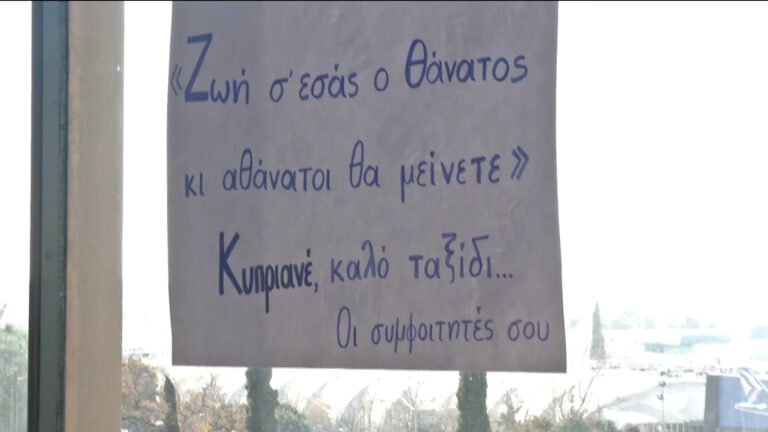 «Ζωή σ' εσάς ο Θάνατος
κι αθάνατοι θα μείνετε»
Κυπριανέ, καλό ταξίδι...
Οι συμφοιτητές σου